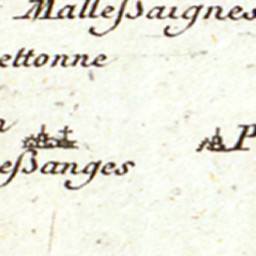 Malleſsaignes
ettonne
P
eſsanges